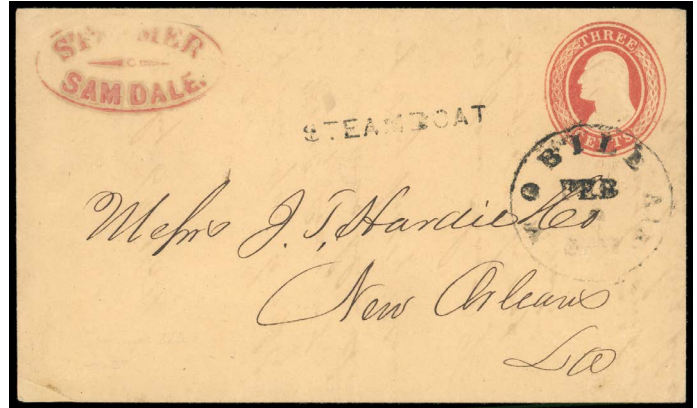 STEAMER
SAM DALE.
THREE
CENTS
STEAMBOAT
MOBILE ALA
FEB
Messrs J. T. Hardie & Co
New Orleans
La